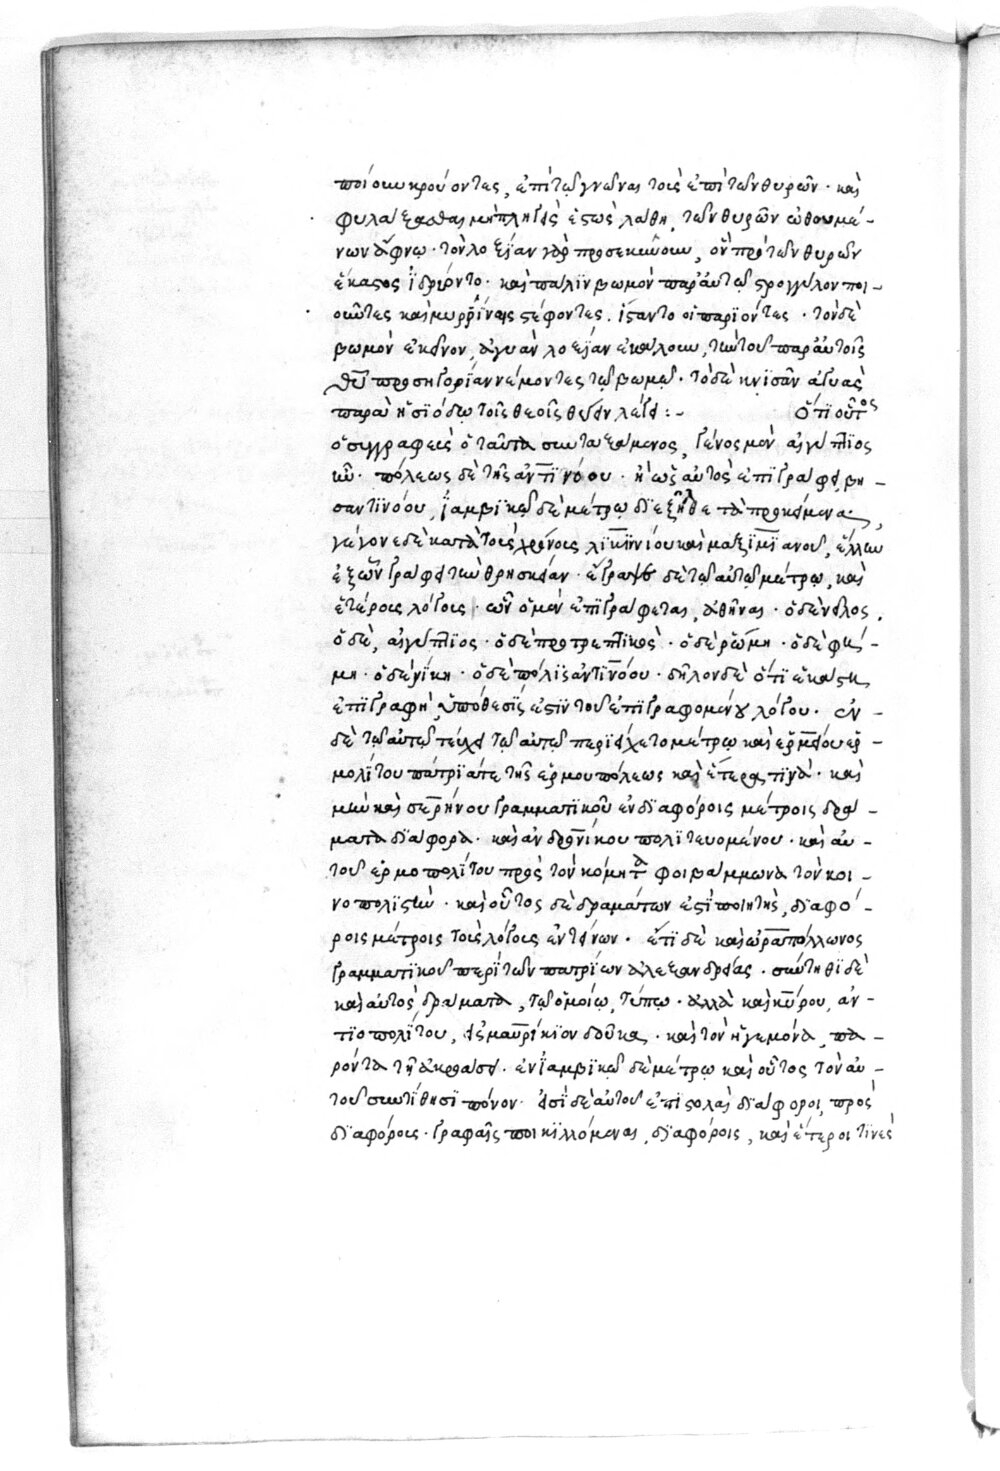 ποίουν κρούοντες, ἐπὶ τῷ γνῶναι τοὺς ἐπὶ τῶν θυρῶν · καὶ
φυλάξασθαι μὴ πληγεὶς ἑστὼς λάθη, τῶν θυρῶν ὠθουμέ-
νων ἄφνω · τὸν λοξίαν γὰρ προσεκύνουν, ὃν πρὸ τῶν θυρῶν
ἕκαστος ἱδρύοντο · καὶ πάλιν βωμὸν παρ' αὐτῷ στρογγύλον ποι-
οῦντες καὶ μυρρίναις στέφοντες. ἵσταντο οἱ παριόντες · τὸν δὲ
βωμὸν ἐκεῖνον, ἀγυιὰν λοξίαν ἐκάλουν, τὴν τοῦ παρ' αὐτοῖς
θεοῦ προσηγορίαν νέμοντες τῷ βωμῷ · τὸ δὲ κνισᾶν ἀγυιὰς
παρὰ ἡσιόδω τοῖς θεοῖς θύειν λέγει :- Ὅτι οὗτος
ὁ συγγραφεὺς ὁ ταῦτα συνταξάμενος, γένος μὲν αἰγύπτιος
ἦν · πόλεως δὲ τῆς ἀντινόου · ἢ ὡς αὐτὸς ἐπιγράφει, βη-
σαντινόου, ἰαμβικῷ δὲ μέτρω διεξῆλθε τὰ προκείμενα ·
γέγονε δὲ κατὰ τοὺς χρόνους λικιννίου καὶ μαξιμιανοῦ, ἕλλην
ἐξ ὧν γράφει τὴν θρησκείαν · ἔγραψε δὲ τῷ αὐτῷ μέτρω, καὶ
ἑτέροις λόγοις · ὧν ὁ μὲν ἐπιγράφεται, ἀθῆναι · ὁ δὲ νεῖλος,
ὁ δὲ, αἰγύπτιος · ὁ δὲ προτρεπτικὸς · ὁ δὲ ῥώμη · ὁ δὲ φή-
μη · ὁ δὲ νίκη · ὁ δὲ πόλις ἀντινόου · δῆλον δὲ ὅτι ἑκάστη
ἐπιγραφὴ ὑπόθεσίς ἐστιν τοῦ ἐπιγραφομένου λόγου · ἐν
δὲ τῷ αὐτῷ τεύχει τῷ αὐτῷ περιείχετο μέτρω καὶ ἑρμείου ἑρ-
μολίτου πάτριά τε τῆς ἑρμουπόλεως καὶ ἕτερα τινὰ · καὶ
μὲν καὶ σερήνου γραμματικοῦ ἐν διαφόροις μέτροις δρά-
ματα διάφορα · καὶ ἀνδρονίκου πολιτευομένου · καὶ αὐ-
τοῦ ἑρμοπολίτου πρὸς τὸν κόμητα φοιβάμμωνα τὸν κοι-
νοπολίστην · καὶ οὗτος δὲ δραμάτων ἐστὶ ποιητὴς, διαφό-
ροις μέτροις τοὺς λόγους ἐντείνων · ἔτι δὲ καὶ ὡραπόλλωνος
γραμματικοῦ περὶ τῶν πατρίων ἀλεξανδρείας · συντίθησι δὲ
καὶ αὐτὸς δράματα, τῷ ὁμοίω, τύπω · ἀλλὰ καὶ κύρου, ἀν-
τιοπολίτου, εἰς μαυρίκιον δοῦκα · καὶ τὸν ἡγεμόνα, πα-
ρόντα τῇ ἀκροάσει · ἐν ἰαμβικῷ δὲ μέτρω καὶ οὗτος τὸν αὐ-
τοῦ συντίθησι πόνον · εἰσὶ δὲ αὐτοῦ ἐπιστολαὶ διάφοροι πρὸς
διαφόρους · γραφαῖς ποικιλλόμεναι, διαφόροις, καὶ ἕτεροι τινὲς